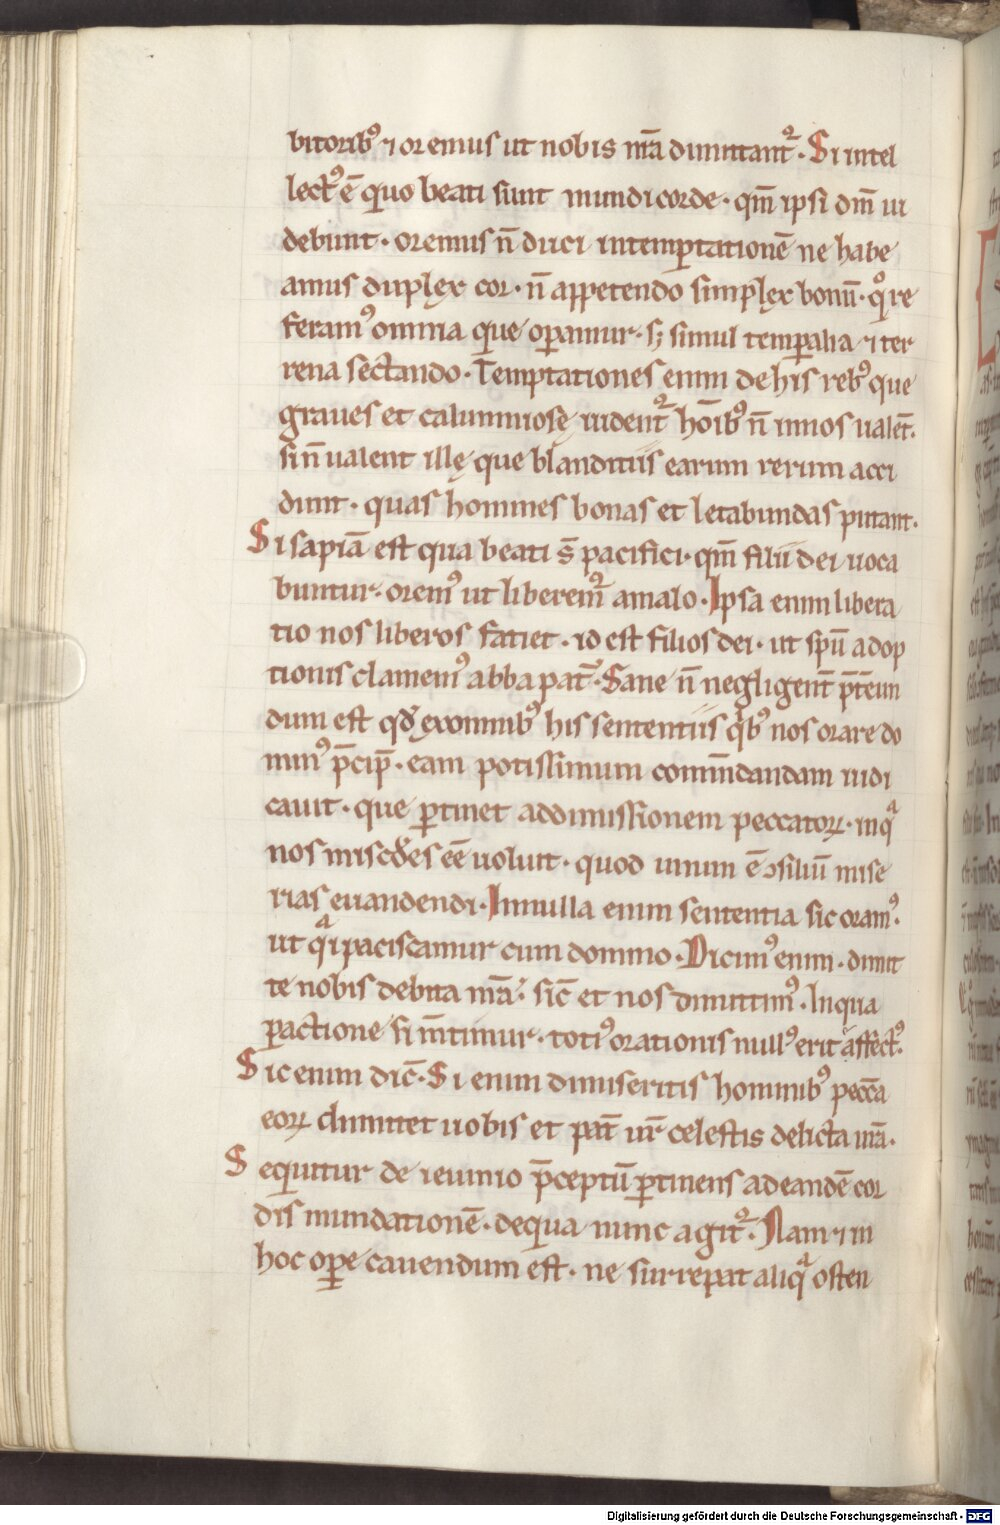 bitoribꝰ ⁊ oremus ut nobis nr̄a dimittant᷑. Si intel
lectꝰ ē quo beati sunt mundicorde. qm̄ ipsi dm̄ ui
debunt. oremus n̄ duci intemptationē ne habe
amus duplex cor. n̄ appetendo simplex bonū. qͦ re
feramꝰ omnia que oꝑamur. sꝫ simul temꝑalia ⁊ ter
rena sectando. Temptationes enim de his rebꝰ que
graues et calumniosę uident᷑ hoībꝰ n̄ in nos ualēt.
si n̄ ualent illę que blanditiis earum rerum acci
dunt. quas homines bonas et letabundas putant.
Si sapiā est qua beati s̄ pacifici. qm̄ filii dei uoca
buntur. oremꝰ ut liberem᷑ amalo. Ipsa enim libera
tio nos liberos fatiet. id est filios dei. ut spū adop
tionis clamemꝰ abba pat̄. Sane n̄ negligent̄ p̄tēun
dum est qd̄ exomnibꝰ his sententiis qͥbꝰ nos orare do
minꝰ p̄cip̄. eam potissimum comm̄dandam iudi
cauit. que ꝑtinet addimissionem peccatoꝝ. inqͣ
nos miscd̄es eē uoluit. quod unum ē ꝯsiliū mise
rias euandendi. Innulla enim sententia sic oramꝰ.
ut qͣi paciscamur cum domino. Dicimꝰ enim. dimit
te nobis debita nr̄a. sic̄ et nos dimittimꝰ. Inqua
pactione si m̄timur. totiꝰ orationis nullꝰ erit affectꝰ.
Sic enim dic̄. Si enim dimiseritis hominibꝰ pecc̄a
eoꝝ dimittet uobis et pat̄ ur̄ celestis delicta ur̄a.
Sequitur de ieiunio p̄ceptū ꝑtinens ad eandē cor
dis mundationē. dequa nunc agit᷑. Nam ⁊ in
hoc oꝑe cauendum est. ne surrepat aliqͣ osten
Digitalisierung gefördert durch die Deutsche Forschungsgemeinschaft - DFG